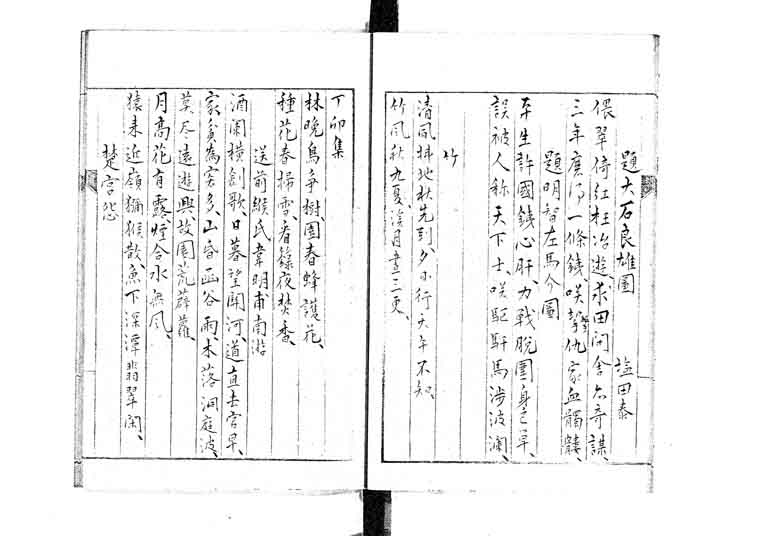 題大石良雄圖 塩田泰
偎翠倚紅枉冶遊、求田問舍亦奇謀、
三年磨得一條鐵、咲擊仇家血髑髏、
題明智左馬今圖
平生許國鐵心肝、力戰脫圍身
誤被人称天下士、咲驅駻馬涉波瀾、
竹
清風掃地秋先到、
行天午不知、
竹風秋九夏溪月晝三更、
丁卯集
林晚鳥爭樹、園春蜂護花、
種花春掃雪、看籙夜焚香、
送前緱氏韋明甫南游
酒闌橫劍歌、日暮望關河、道直去官早、
家貧為客多、山昏函谷雨、木落洞庭波、
莫尽遠遊興、故園荒薜蘿、
月高花有露、煙合水無風、
猿來近嶺獼猴散、魚下深潭翡翠闲、
楚宮怨